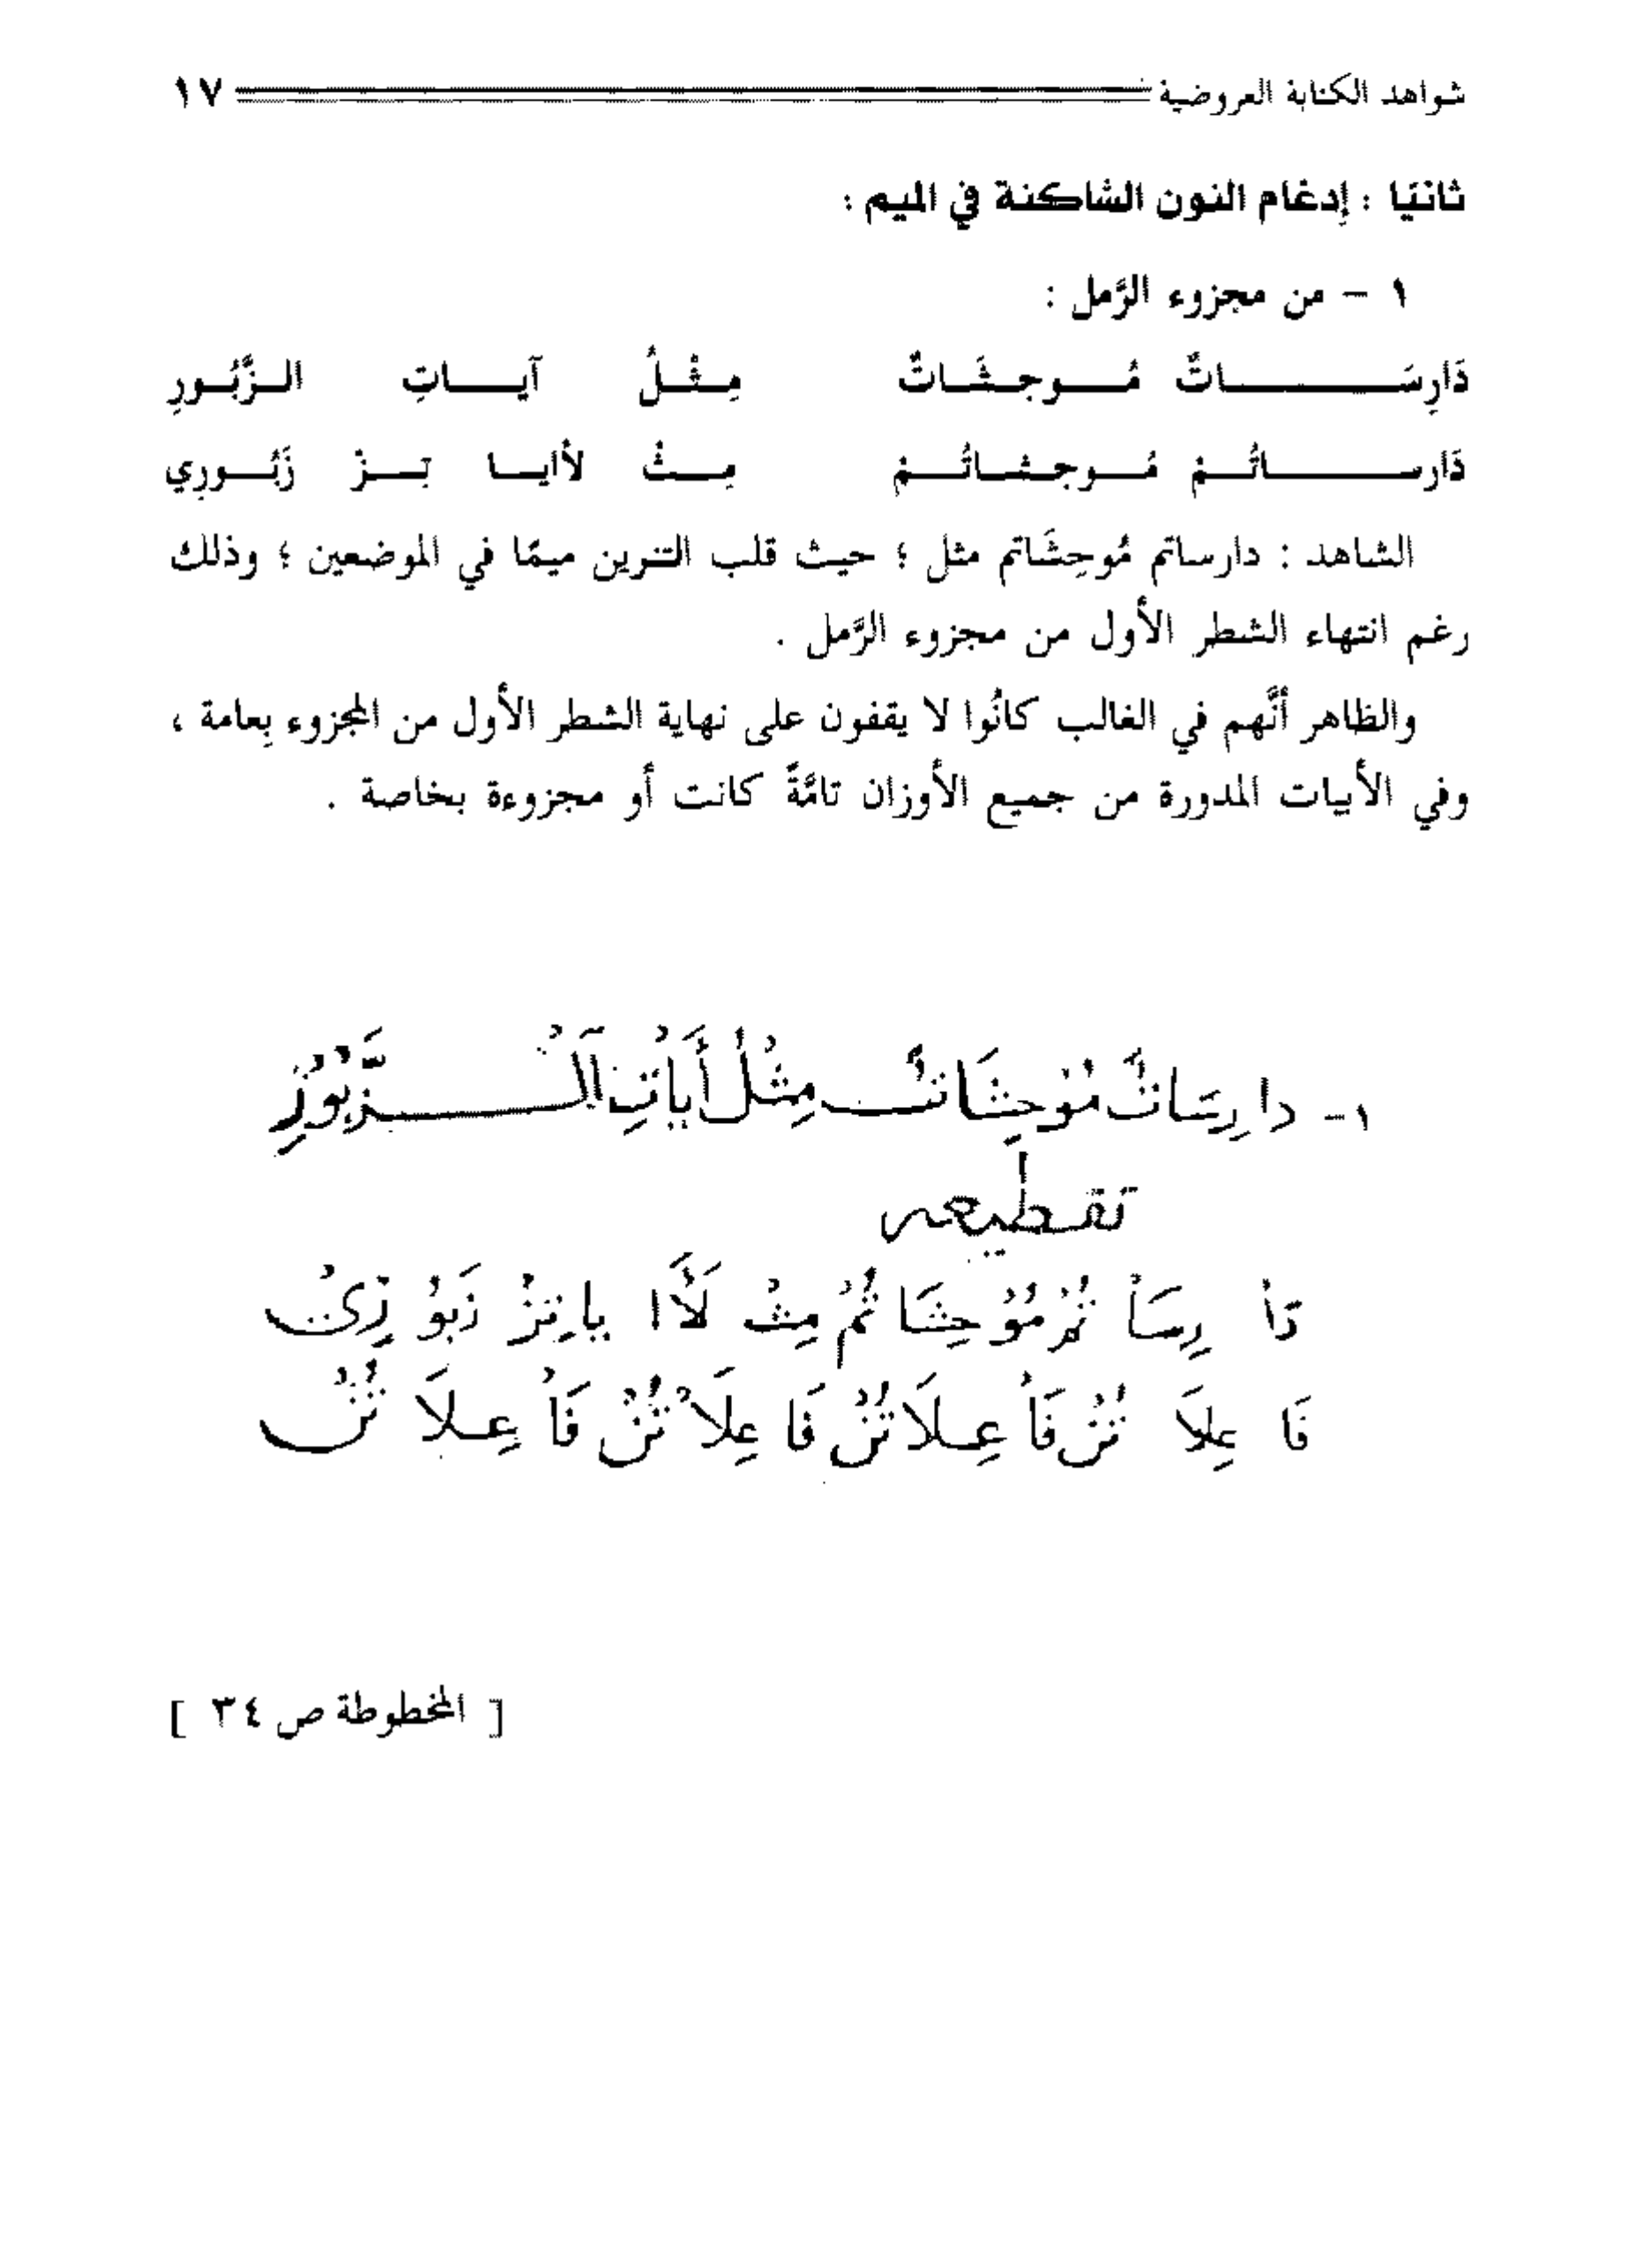 شواهد الكتابة العروضية ١٧
ثانيًا : إدغام النون الساكنة في الميم :
١ – من مجزوء الرَّمل :
دَارِسَاتٌ مُوحِشَاتٌ مِثْلُ آيَاتِ الزَّبُورِ
دَارِسَاتُمْ مُوحِشَاتُمْ مِثْ لأايا تِزْ زَبُورِي
الشاهد : دارساتم مُوحِشَاتم مثل ؛ حيث قلب التنوين ميمًا في الموضعين ؛ وذلك
رغم انتهاء الشطر الأول من مجزوء الرَّمل .
والظاهر أنَّهم في الغالب كانُوا لا يقفون على نهاية الشطر الأول من المجزوء بِعامة ،
وفي الأبيات المدورة من جميع الأوزان تامَّةً كانت أو مجزوءة بخاصة .
١- دارِسَاتٌ مُوْحِشَاتٌ مِثْلُ أَيَاْتِ اَلْزَّبُوْرِ
تقطيعه
دَاْ رِسَاْ تُمْ مُوْحِشَا تُمْ مِثْ لَأَا يا تِزْ زَبُوْ رِيْ
فَا عِلَا تُنْ فَاْ عِلَا تُنْ فَا عِلَاْ تُنْ فَاْ عِلَا تُنْ
[ المخطوطة ص ٣٤ ]